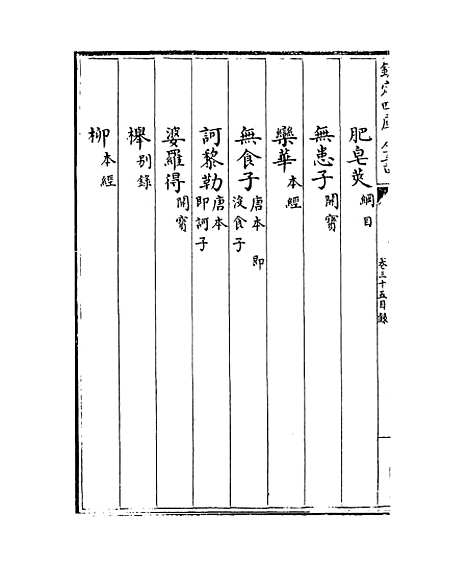 欽定四庫全書
卷三十五目録
肥皂莢 綱目
無患子 開寳
欒華 本經
無食子 唐本 即沒食子
訶黎勒 唐本 即訶子
婆羅得 開寳
櫸 别録
柳 本經